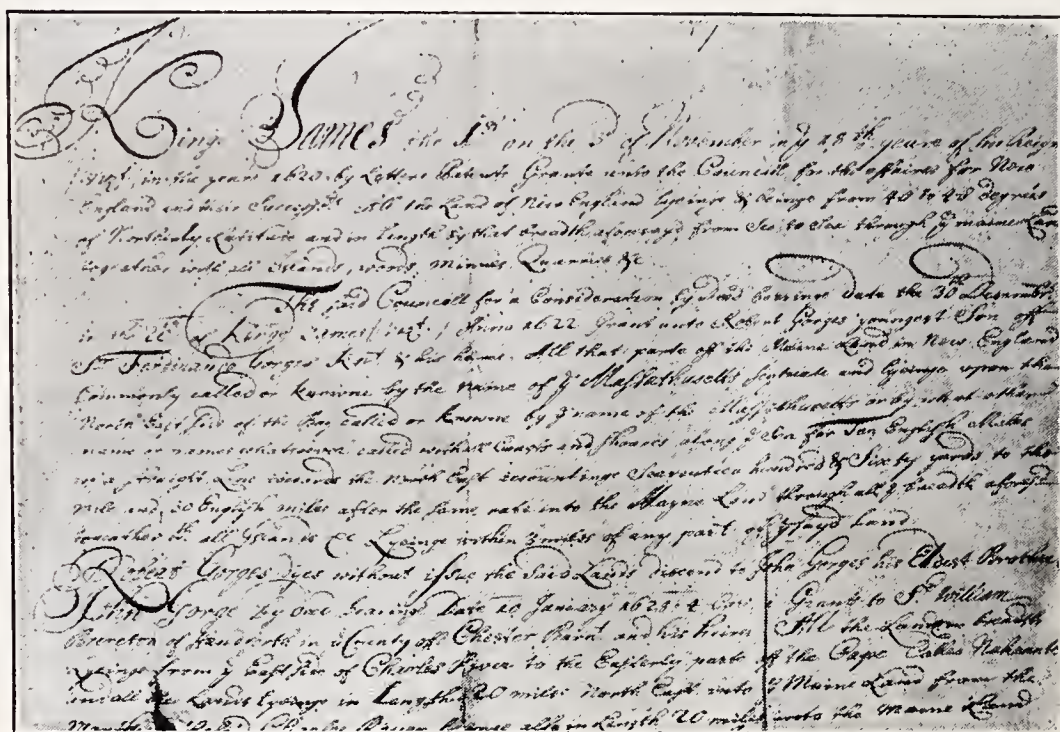 King James the 1st on the 3d of November in ye 18th yeare of his Reign
in the yeare 1620 by Letters Patents Grants unto the Councill for the affaires for New
England and their Successrs All the Land of New England lyeinge & beinge from 40 to 48 degrees
of Northerly Latitude and in Length by that breadth aforesayd from Sea to Sea through ye maine Land
together with all Islands, woods, Mines, Quarries &c
The said Councill for a Consideration by deed bearinge date the 30th December
in the of Kinge James Anno 1622 Grant unto Robert Gorges youngest Son off
Sr Ferdinando Gorges Knt & his heires. All that parte off the Maine Land in New England
Commonly called or knowne by the name of ye Massathusetts scituate and lyeinge upon the
North East side of the Bay called or knowne by ye name of the Massathusetts or by what other
name or names whatsoever called with all Coasts and shoares along ye Sea for Ten English Miles
in a straight Line towards the North East accountinge Seaventeen hundred & Sixty yards to the
mile and 30 English miles after the same rate into the Mayne Land through all ye breadth aforesaid
together wth all Islands &c Lyeinge within 3 miles of any part of ye sayd Land
Robert Gorges dyes without issue the said Lands discend to John Gorges his Eldest Brother
John Gorge by deed bearing Date 10 January 1628 Grants to Sr William
Brereton of Handforth in ye County off Chester Barnt and his heires All the Land in breadth
Lyeinge from ye East side of Charles River to the Easterly parte off the Cape Called Nahannte
and all the Lands lyeinge in Length 20 miles North East into ye Maine Land from the
Mouth of the said Charles River lyeinge also in Length 20 miles into the Maine Land